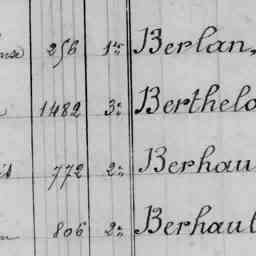 256 1re Berlan,
1482 3e Berthelo
772 2e Berhau
806 2e Berhaul